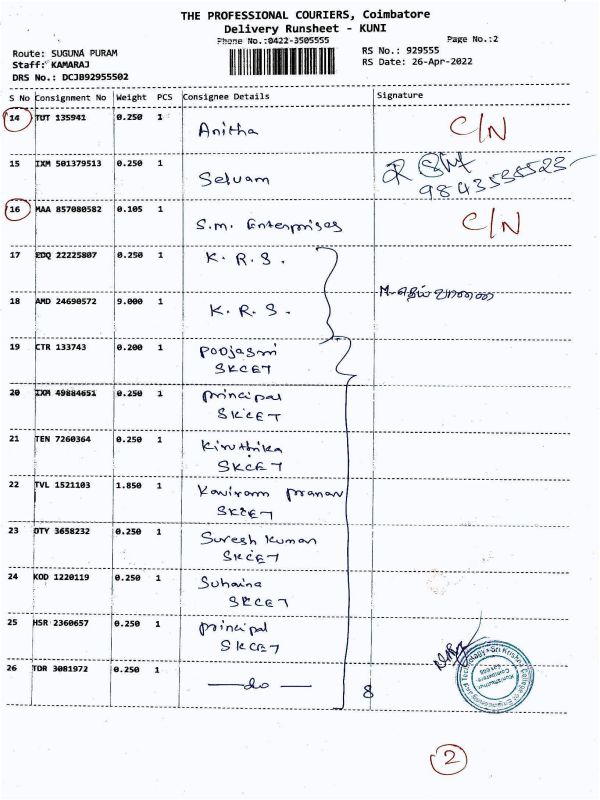 THE PROFESSIONAL COURIERS, Coimbatore
Delivery Runsheet - KUNI
Phone No.:0422-3505555
Page No.:2
Route: SUGUNA PURAM
RS No.: 929555
Staff: KAMARAJ
RS Date: 26-Apr-2022
DRS No.: DCJB92955502
S No Consignment No Weight PCS Consignee Details Signature
14 TUT 135941 0.250 1 Anitha C/N
15 IXM 501379513 0.250 1 Selvam
16 MAA 857080582 0.105 1 S.M. Enterprises C/N
17 EDQ 22225807 0.250 1 K. R. S.
18 AMD 24690572 9.000 1 K. R. S.
M.தெய்வானை
19 CTR 133743 0.200 1 Poojasri
SKCET
20 IXM 49884651 0.250 1 principal
SKCET
21 TEN 7260364 0.250 1 Kiruthika
SKCET
22 TVL 1521103 1.850 1 Kaviram pranav
SKCET
23 OTY 3658232 0.250 1 Suresh Kumar
SKCET
24 KOD 1220119 0.250 1 Suhaina
SKCET
25 HSR 2360657 0.250 1 principal
SKCET
26 TDR 3081972 0.250 1 — do — 8
Sri Krishna College of Engineering and Technology
Kuniamuthur
Coimbatore
641 008
2